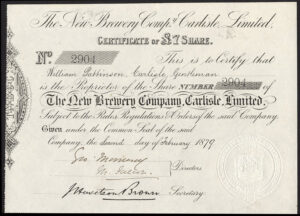 The New Brewery Compy. Carlisle, Limited.
CERTIFICATE OF £7 SHARE.
No. 2904 This is to Certify that
William Pattinson Carlisle Gentleman
is the Proprietor of the Share NUMBER 2904 of
The New Brewery Company, Carlisle, Limited,
Subject to the Rules Regulations & Orders of the said Company
Given under the Common Seal of the said
Company, the Second day of February 1879
Geo
Directors
Brown Secretary.